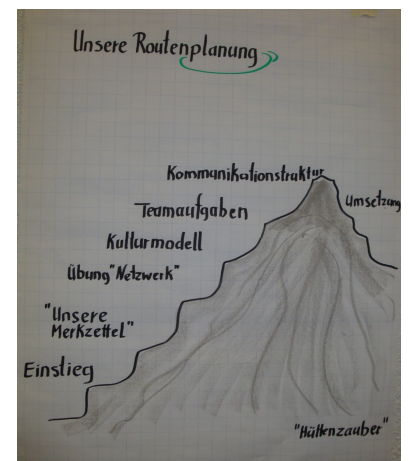 Unsere Routenplanung
Kommunikationstraktur
Umsetzung
Teamaufgaben
Kulturmodell
Übung "Netzwerk"
"Unsere
Merkzettel"
Einstieg
"Hüttenzauber"